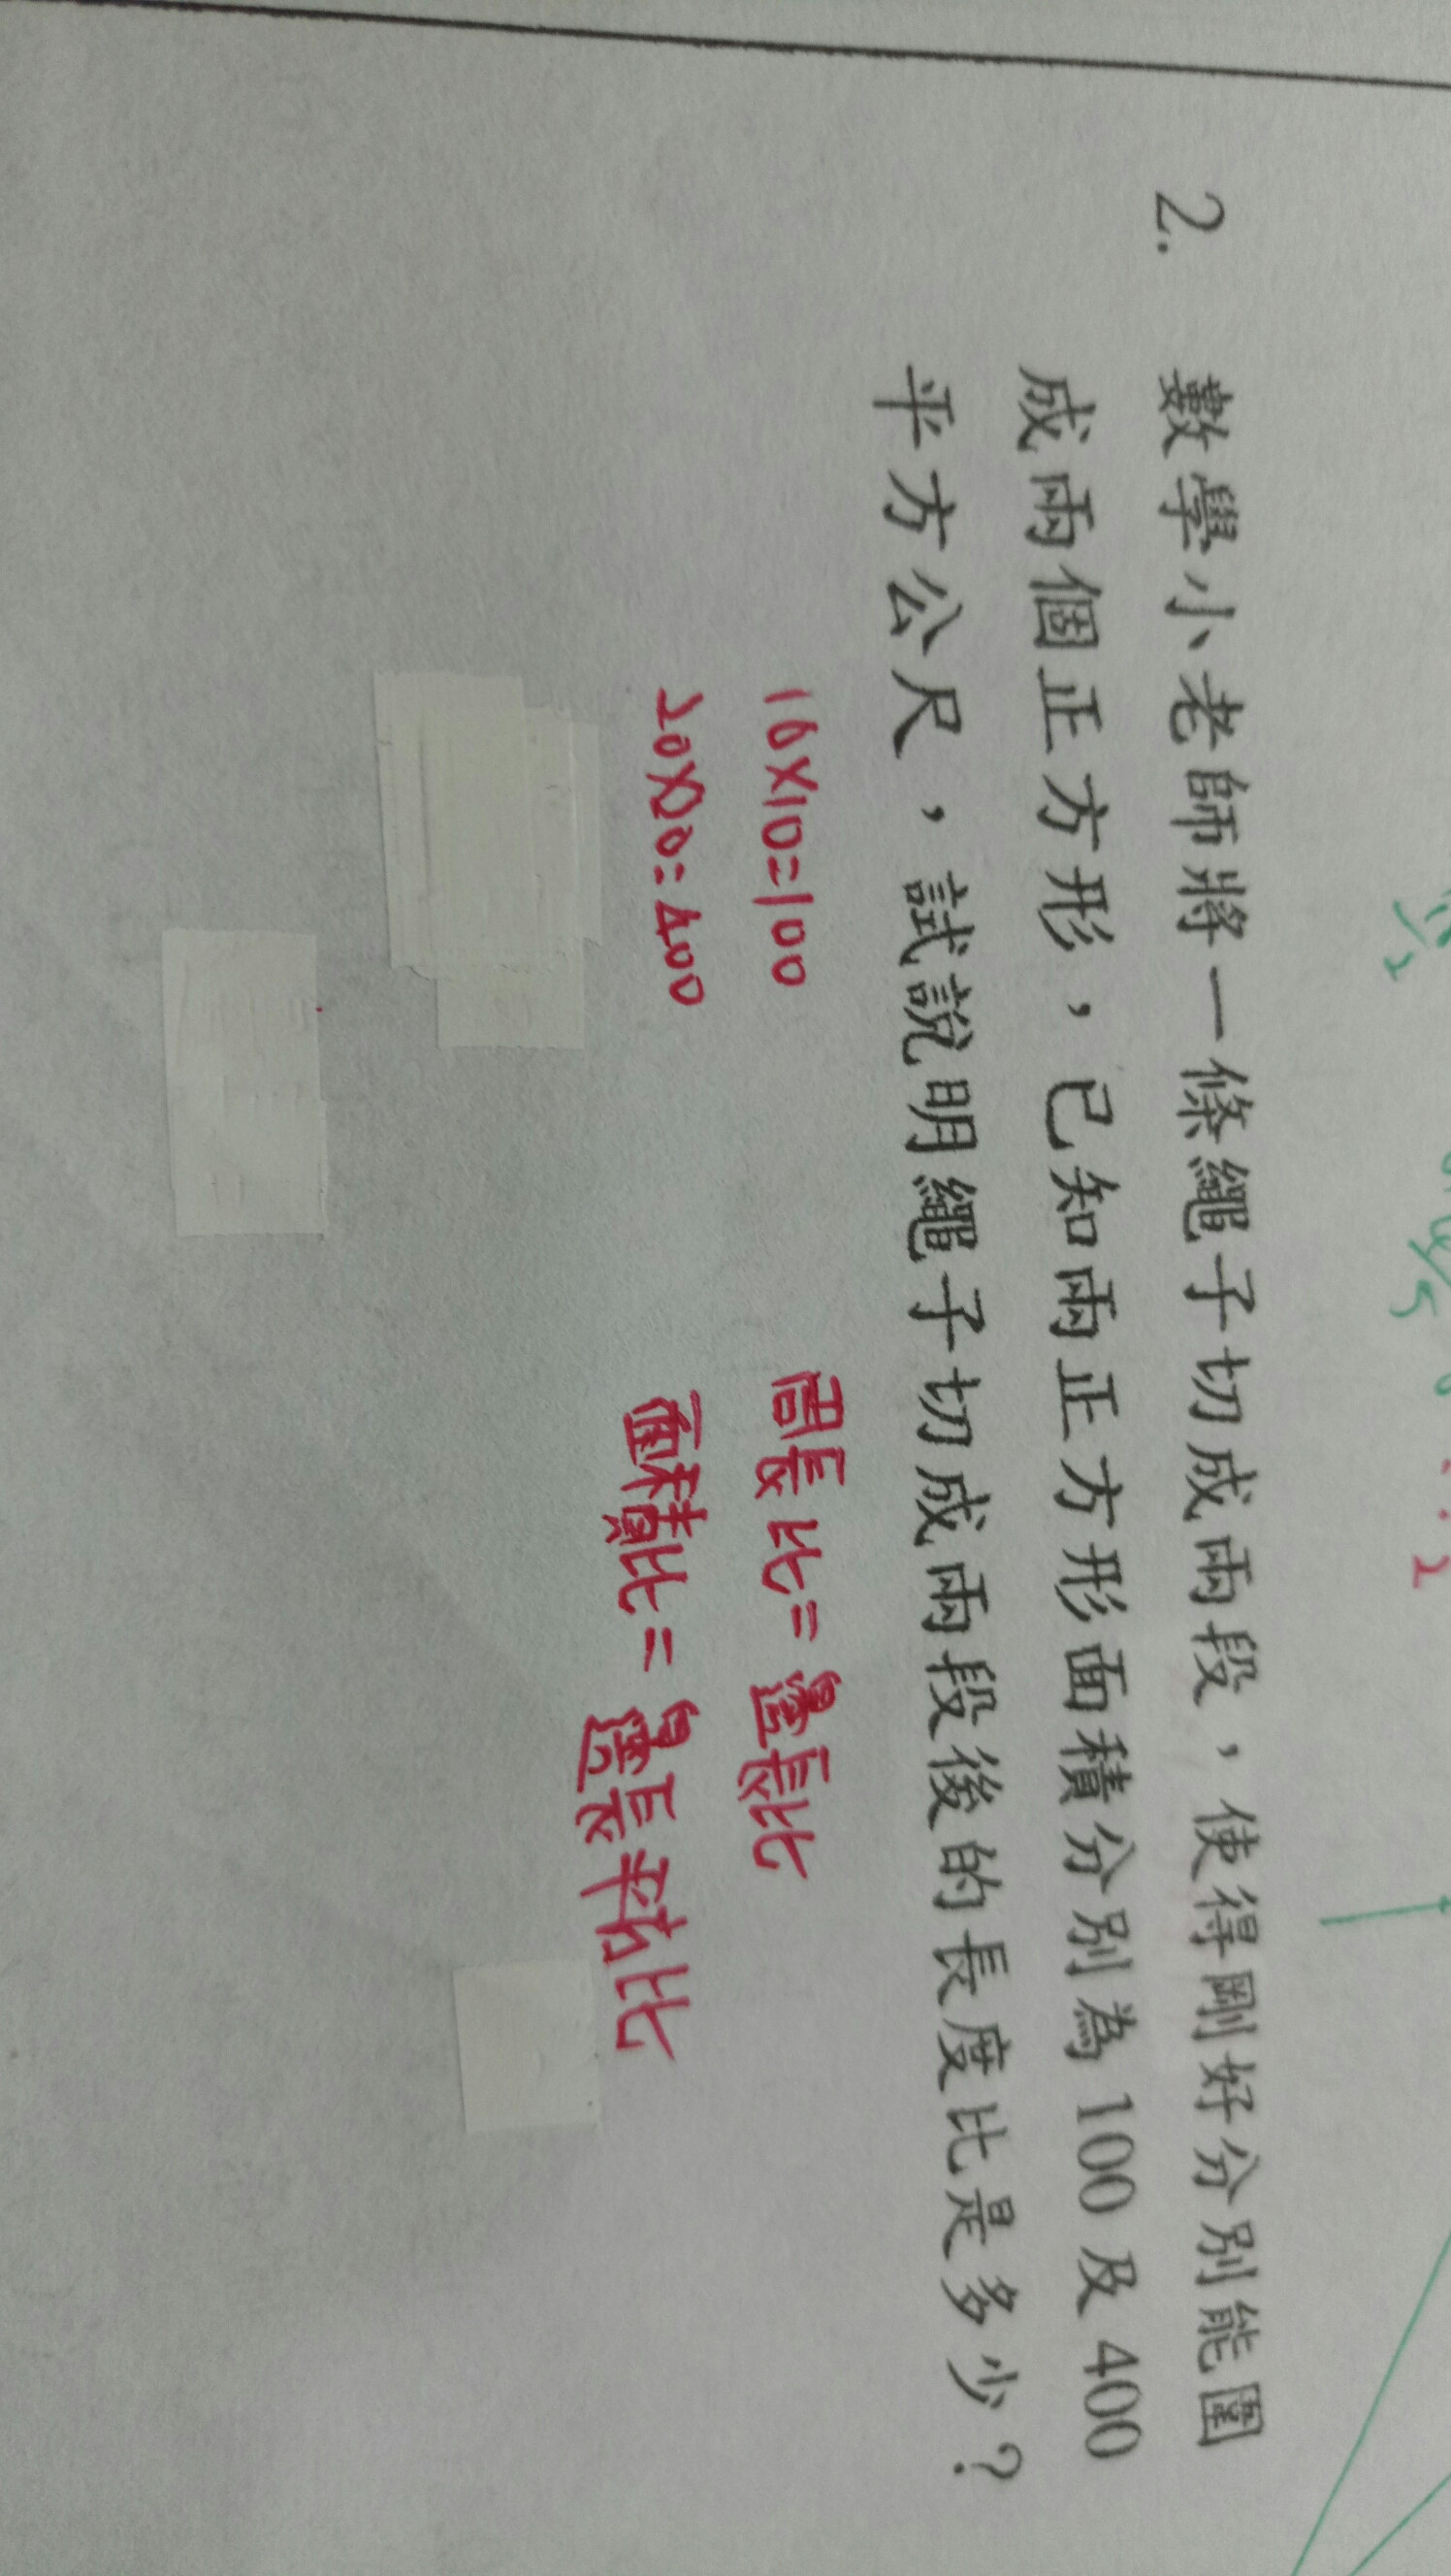 2. 數學小老師將一條繩子切成兩段，使得剛好分別能圍
成兩個正方形，已知兩正方形面積分別為 100 及 400
平方公尺，試說明繩子切成兩段後的長度比是多少？
10X10=100
20X20=400
周長比=邊長比
面積比=邊長平方比